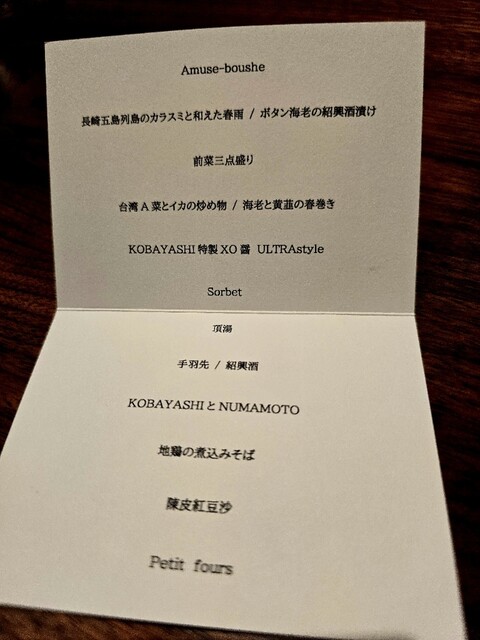 Amuse-boushe
長崎五島列島のカラスミと和えた春雨 / ボタン海老の紹興酒漬け
前菜三点盛り
台湾A菜とイカの炒め物 / 海老と黄韮の春巻き
KOBAYASHI特製XO醤 ULTRAstyle
Sorbet
頂湯
手羽先 / 紹興酒
KOBAYASHIとNUMAMOTO
地鶏の煮込みそば
陳皮紅豆沙
Petit fours